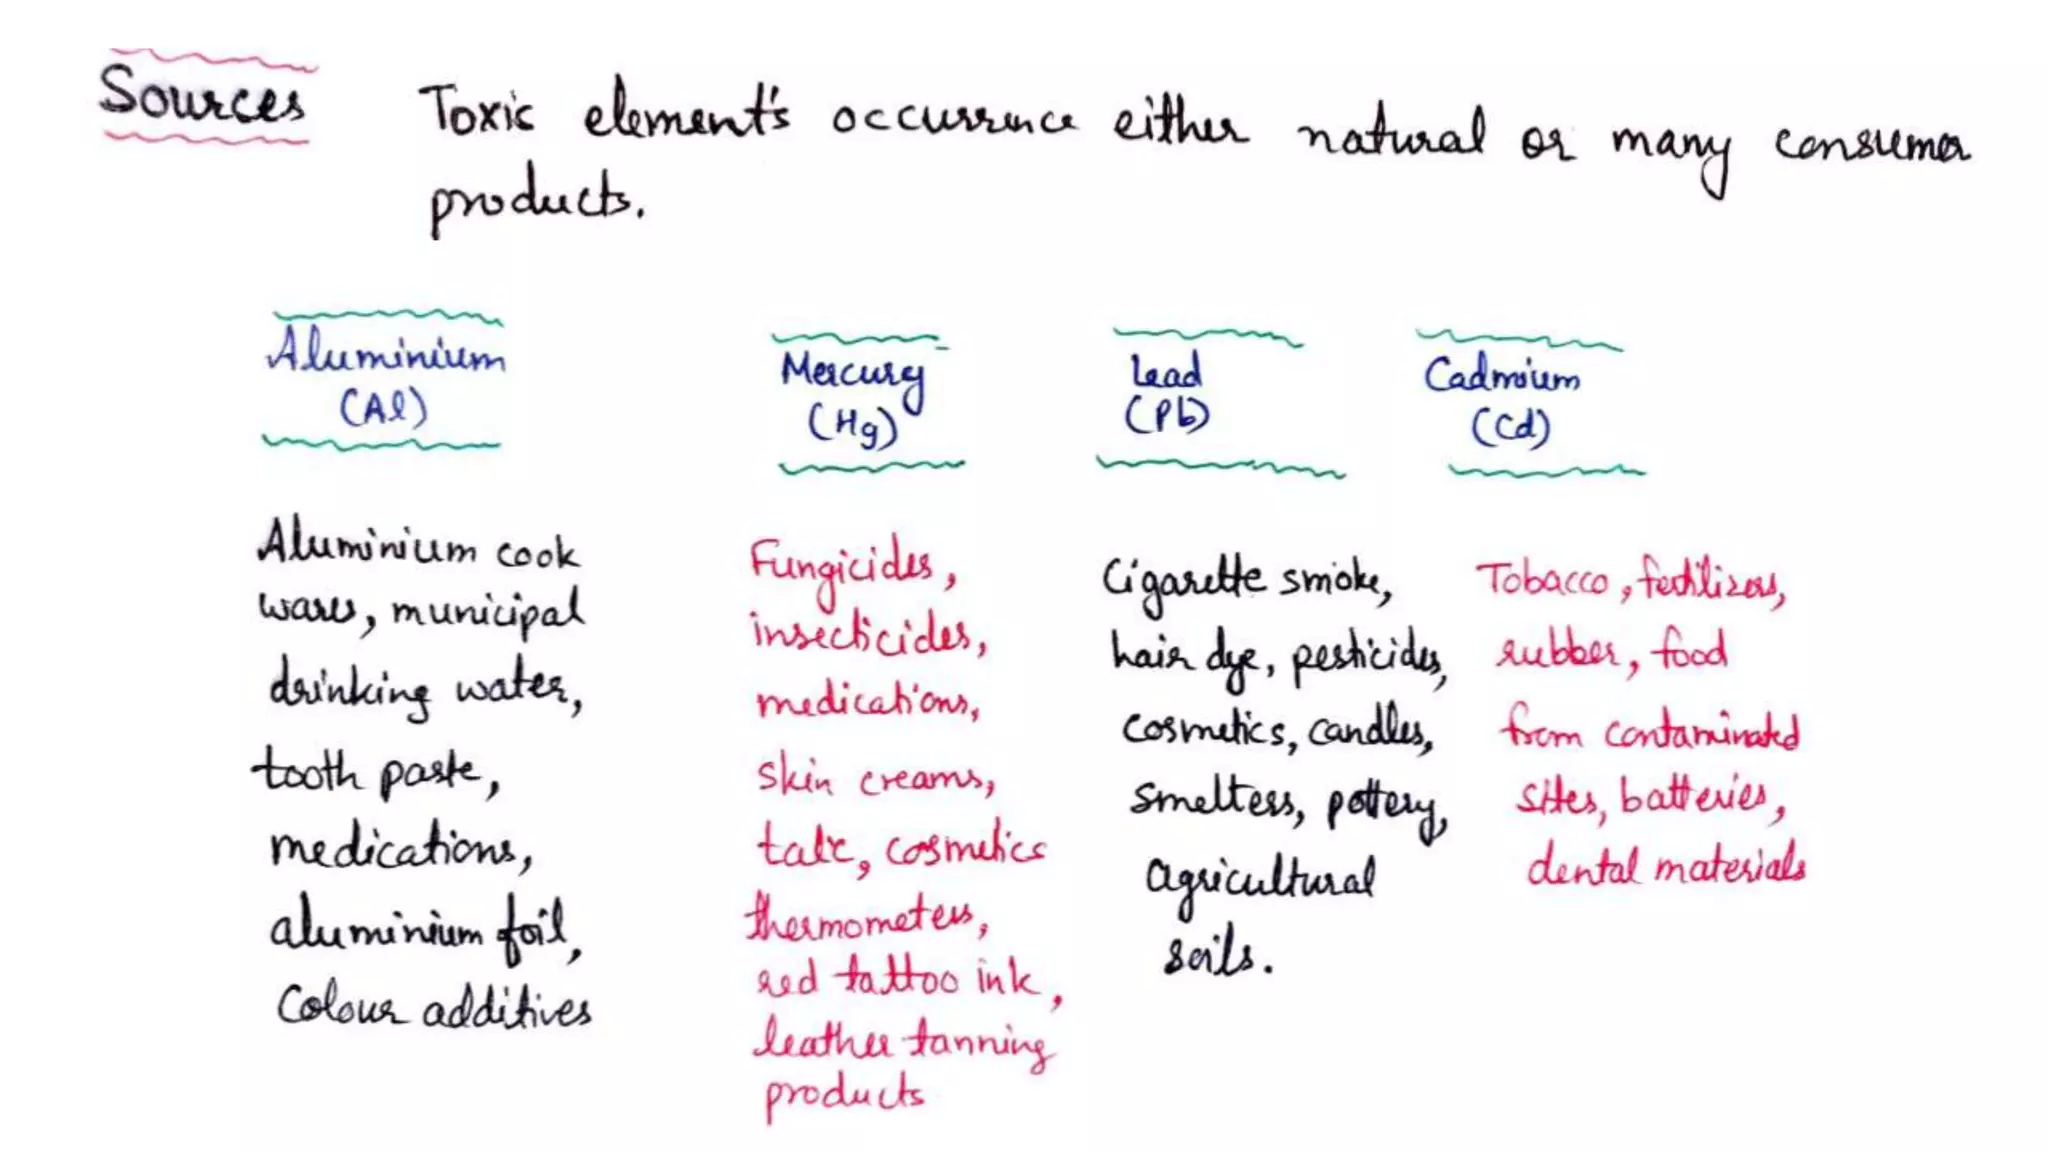 Sources
Toxic element's occurrence either natural or many consumer
products.
Aluminium
(Al)
Aluminium cook
wares, municipal
drinking water,
tooth paste,
medications,
aluminium foil,
Colour additives
Mercury
(Hg)
Fungicides,
insecticides,
medications,
skin creams,
talc, cosmetics
thermometers,
red tattoo ink,
leather tanning
products
Lead
(Pb)
Cigarette smoke,
hair dye, pesticides,
cosmetics, candles,
smelters, pottery,
agricultural
soils.
Cadmium
(Cd)
Tobacco, fertilizers,
rubber, food
from contaminated
sites, batteries,
dental materials